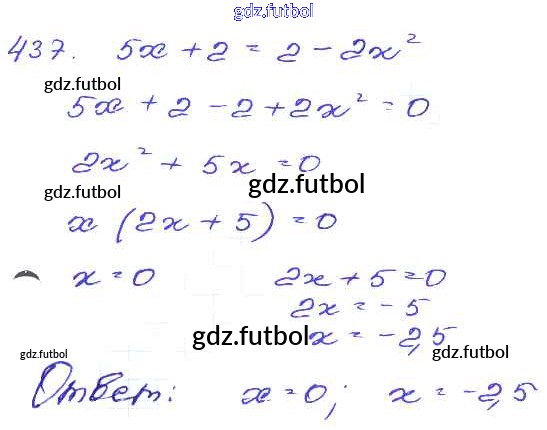 gdz.futbol
437. 5x + 2 = 2 - 2x²
gdz.futbol
5x + 2 - 2 + 2x² = 0
2x² + 5x = 0
gdz.futbol gdz.futbol
x (2x + 5) = 0
x = 0 2x + 5 = 0
2x = -5
gdz.futbol x = -2,5
gdz.futbol gdz.futbol
Ответ: x = 0; x = -2,5